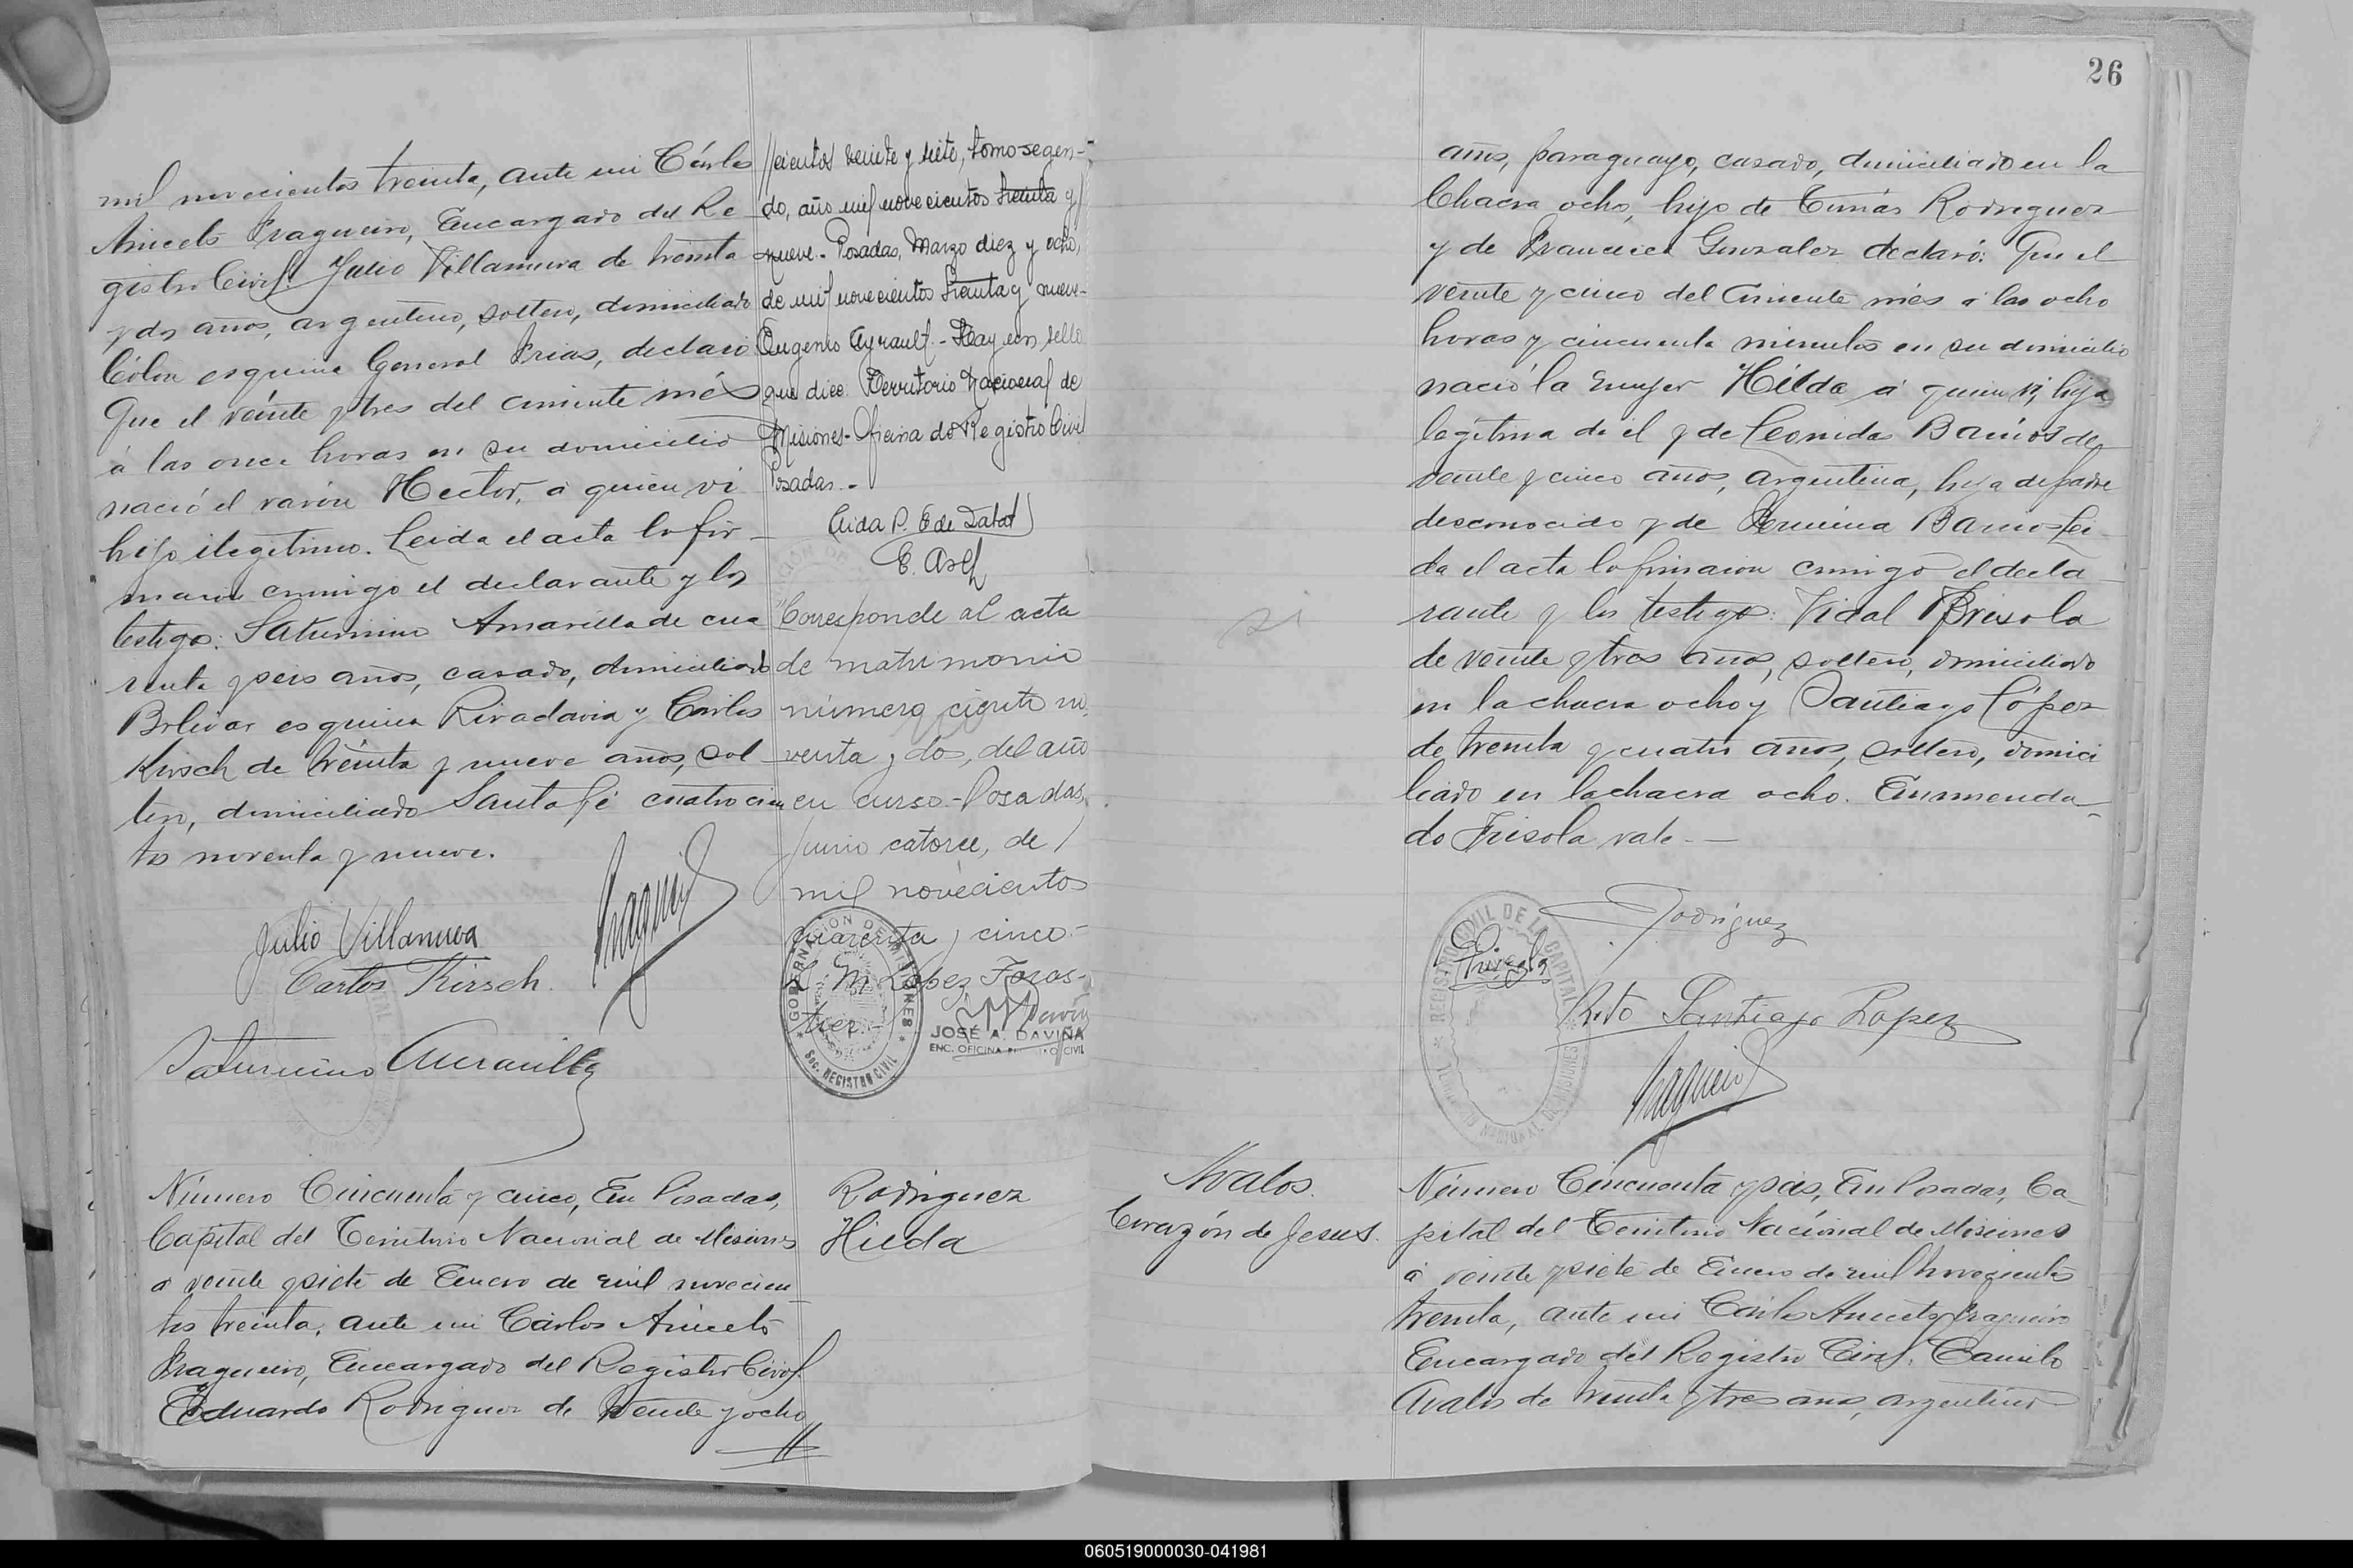 mil novecientos treinta, ante mi Cárlos
Aniceto Fragueiro, Encargado del Re-
gistro Civil. Julio Villanueva de treinta
y dos años, argentino, soltero, domiciliado
Cólon esquina General Frias, declaró
Que el veinte y tres del corriente més
á las once horas en su domicilio
nació el varón Hector, a quien vi
hijo ilegitimo. Leida el acta la fir-
maron conmigo el declarante y los
testigos: Saturnino Amarilla de cua
renta y seis años, casado, domiciliado
Bolivar esquina Rivadavia y Cárlos
Kirsch de treinta y nueve años, sol
tero, domiciliado Santa fé cuatrocien
tos noventa y nueve.
Julio Villanueva
Carlos Kirsch.
Saturnino Amarilla
//cientos veinte y siete, tomo segun-
do, año mil novecientos treinta y
nueve.- Posadas, Marzo diez y ocho,
de mil novecientos treinta y nueve.-
Eugenio Ayrault.- Hay un sello
que dice: Territorio Nacional de
Misiones- Oficina de Registro Civil
Posadas.-
"Corresponde al acta
de matrimonio
número ciento no
venta y dos, del año
en curso.- Posadas,
Junio catorce, de
mil novecientos
cuarenta y cinco.-
L. M. López Foras-
tier.-
GOBERNACION DE MISIONES
SEC. REGISTRO CIVIL
JOSÉ A. DAVIÑA
ENC. OFICINA CIVIL
Número Cincuenta y cinco, En Posadas,
Capital del Territorio Nacional de Misiones
a veinte y siete de Enero de mil novecien-
tos treinta, ante mi Cárlos Aniceto
Fragueiro, Encargado del Registro Civil.
Eduardo Rodriguez de veinte y ocho
//
Rodriguez
Hilda
26
años, paraguayo, casado, domiciliado en la
Chacra ocho, hijo de Tomás Rodriguez
y de Francisca Gonzalez declaró: Que el
veinte y cinco del corriente més á las ocho
horas y cincuenta minutos en su domicilio
nació la mujer Hilda á quien vi, hija
legitima de el y de Leonidas Barrios de
veinte y cinco años, argentina, hija de padre
desconocido y de Barrios Lei-
da el acta la firmaron conmigo el decla
rante y los testigos: Vidal Brisola
de veinte y tres años, soltero, domiciliado
en la chacra ocho y Santiago López
de treinta y cuatro años, soltero, domici
liado en la chacra ocho. Enmenda-
do Frisola vale.-
si
Rodriguez
Santiago Lopez
REGISTRO CIVIL DE LA CAPITAL
NACIONAL DE MISIONES
Avalos.
Corazón de Jesus.
Número Cincuenta y seis, En Posadas, Ca-
pital del Territorio Nacional de Misiones
á veinte y siete de Enero de mil novecientos
treinta, ante mi Cárlos Aniceto Fragueiro
Encargado del Registro Civil. Camilo
Avalos de treinta y tres años, argentino
060519000030-041981